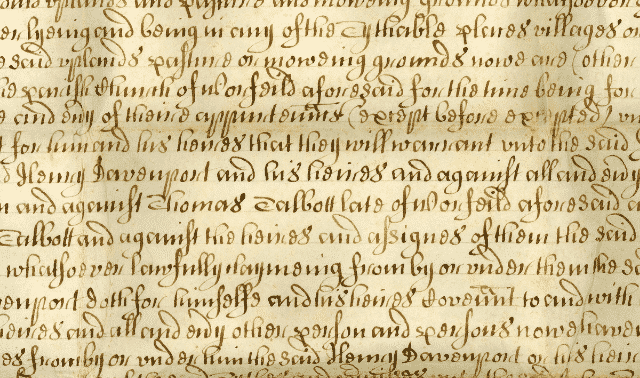 said uplands and pasture and mowing grounds whatsoever
lyeing and being in any of the Tythable places villages or
said uplands pasture or moweing grounds nowe are (other
parish Church of Worfeild aforesaid for the time being for
and evy of theire appurtenncs (except before excepted) un
for him and his heires that they will warrant unto the said
Henry Davenport and his heires and against all and evy
and against Thomas Talbott late of Worfeild aforesaid
Talbott and against the heires and assignes of them the said
whatsoever lawfully claymeing from by or under them the sd
venport doth for himselfe and his heires Covennt to and with
heires and all and evy other person and persons nowe haveing
es from by or under him the said Henry Davenport or his heires